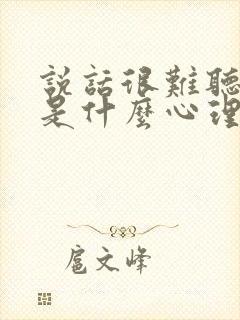 說話很難聽
是什麼心理
扈文峰